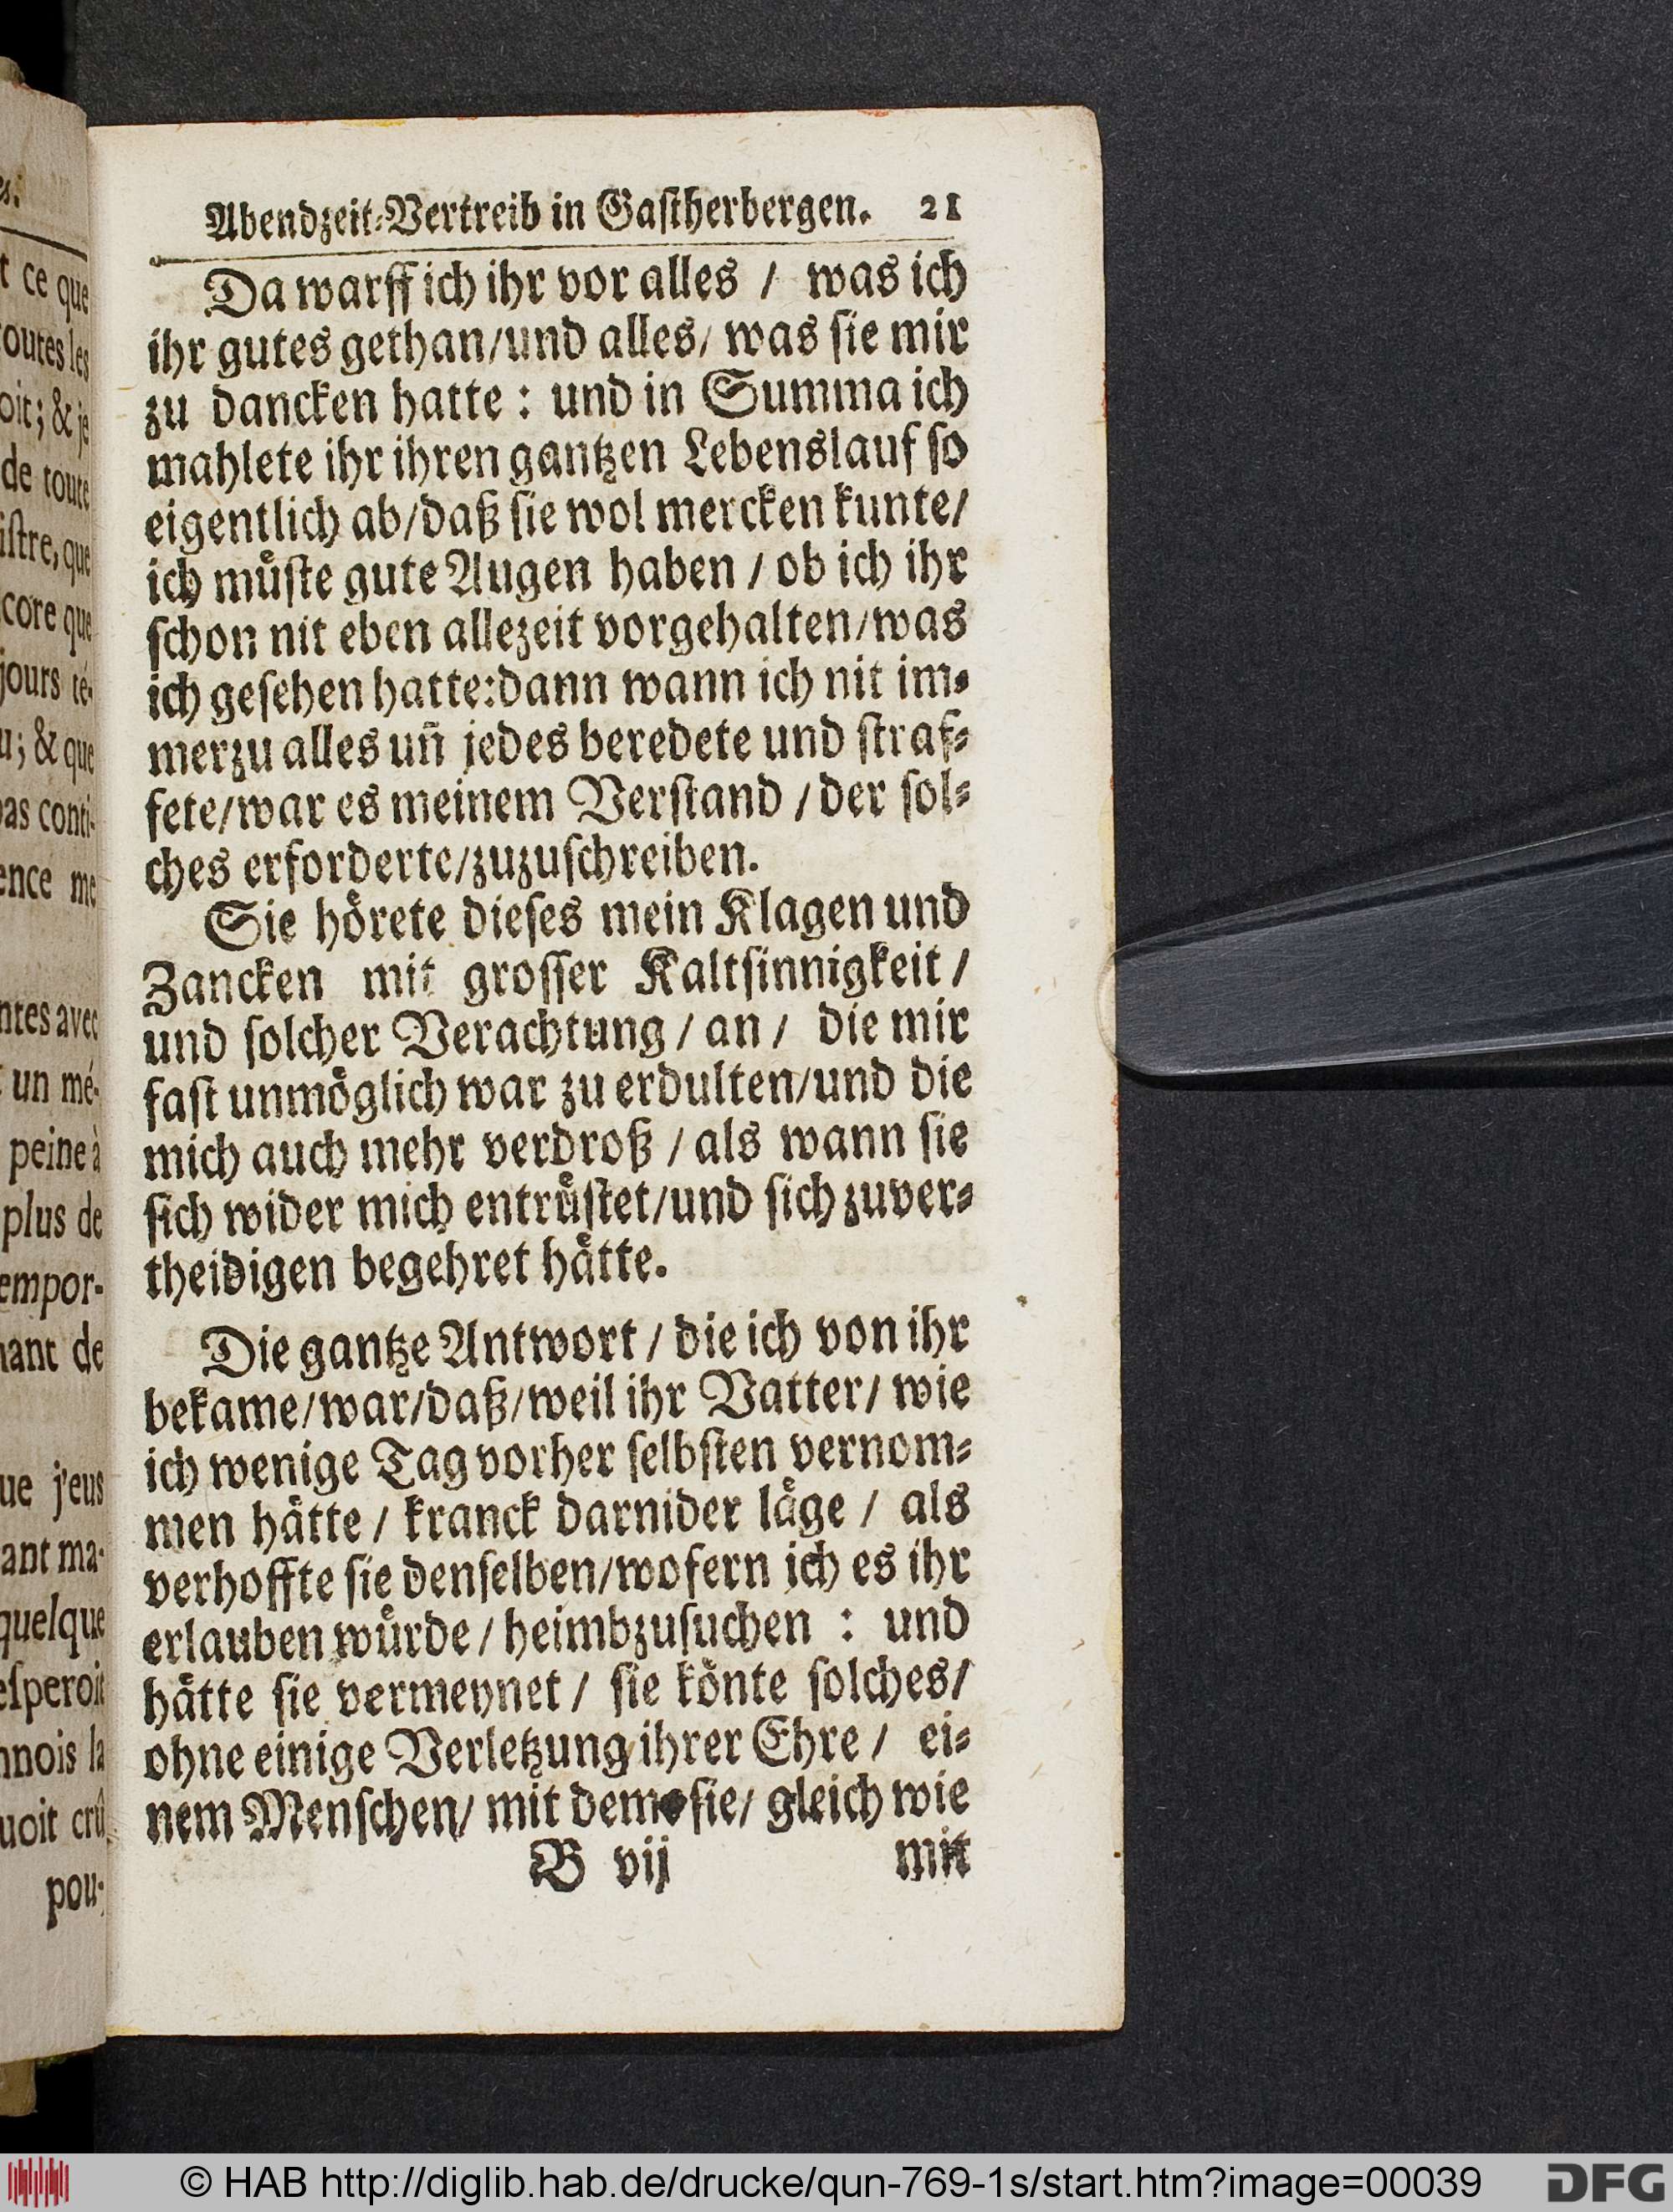 s.
t ce que
outes les
oit; & je
de toute
iſtre, que
core que
jours ré-
u; & que
pas conti-
ence me
ntes avec
un mé-
peine à
plus de
empor-
nant de
ue j'eus
ant ma-
quelque
eſperoit
nnois la
uoit crû
pou-
Abendzeit-Vertreib in Gaſtherbergen. 21
Da warff ich ihr vor alles / was ich
ihr gutes gethan/und alles/ was ſie mir
zu dancken hatte : und in Summa ich
mahlete ihr ihren gantzen Lebenslauf ſo
eigentlich ab/daß ſie wol mercken kunte/
ich muͤſte gute Augen haben / ob ich ihr
ſchon nit eben allezeit vorgehalten/was
ich geſehen hatte:dann wann ich nit im-
merzu alles uñ jedes beredete und ſtraf-
fete/war es meinem Verſtand / der ſol-
ches erforderte/zuzuſchreiben.
Sie hoͤrete dieſes mein Klagen und
Zancken mit groſſer Kaltſinnigkeit /
und ſolcher Verachtung / an / die mir
faſt unmoͤglich war zu erdulten/und die
mich auch mehr verdroß / als wann ſie
ſich wider mich entruͤſtet/und ſich zuver-
theidigen begehret haͤtte.
Die gantze Antwort / die ich von ihr
bekame/war/daß/weil ihr Vatter/ wie
ich wenige Tag vorher ſelbſten vernom-
men haͤtte / kranck darnider laͤge / als
verhoffte ſie denſelben/wofern ich es ihr
erlauben wuͤrde / heimbzuſuchen : und
haͤtte ſie vermeynet / ſie koͤnte ſolches/
ohne einige Verletzung ihrer Ehre / ei-
nem Menſchen/ mit dem ſie/ gleich wie
B vij mit
© HAB http://diglib.hab.de/drucke/qun-769-1s/start.htm?image=00039
DFG